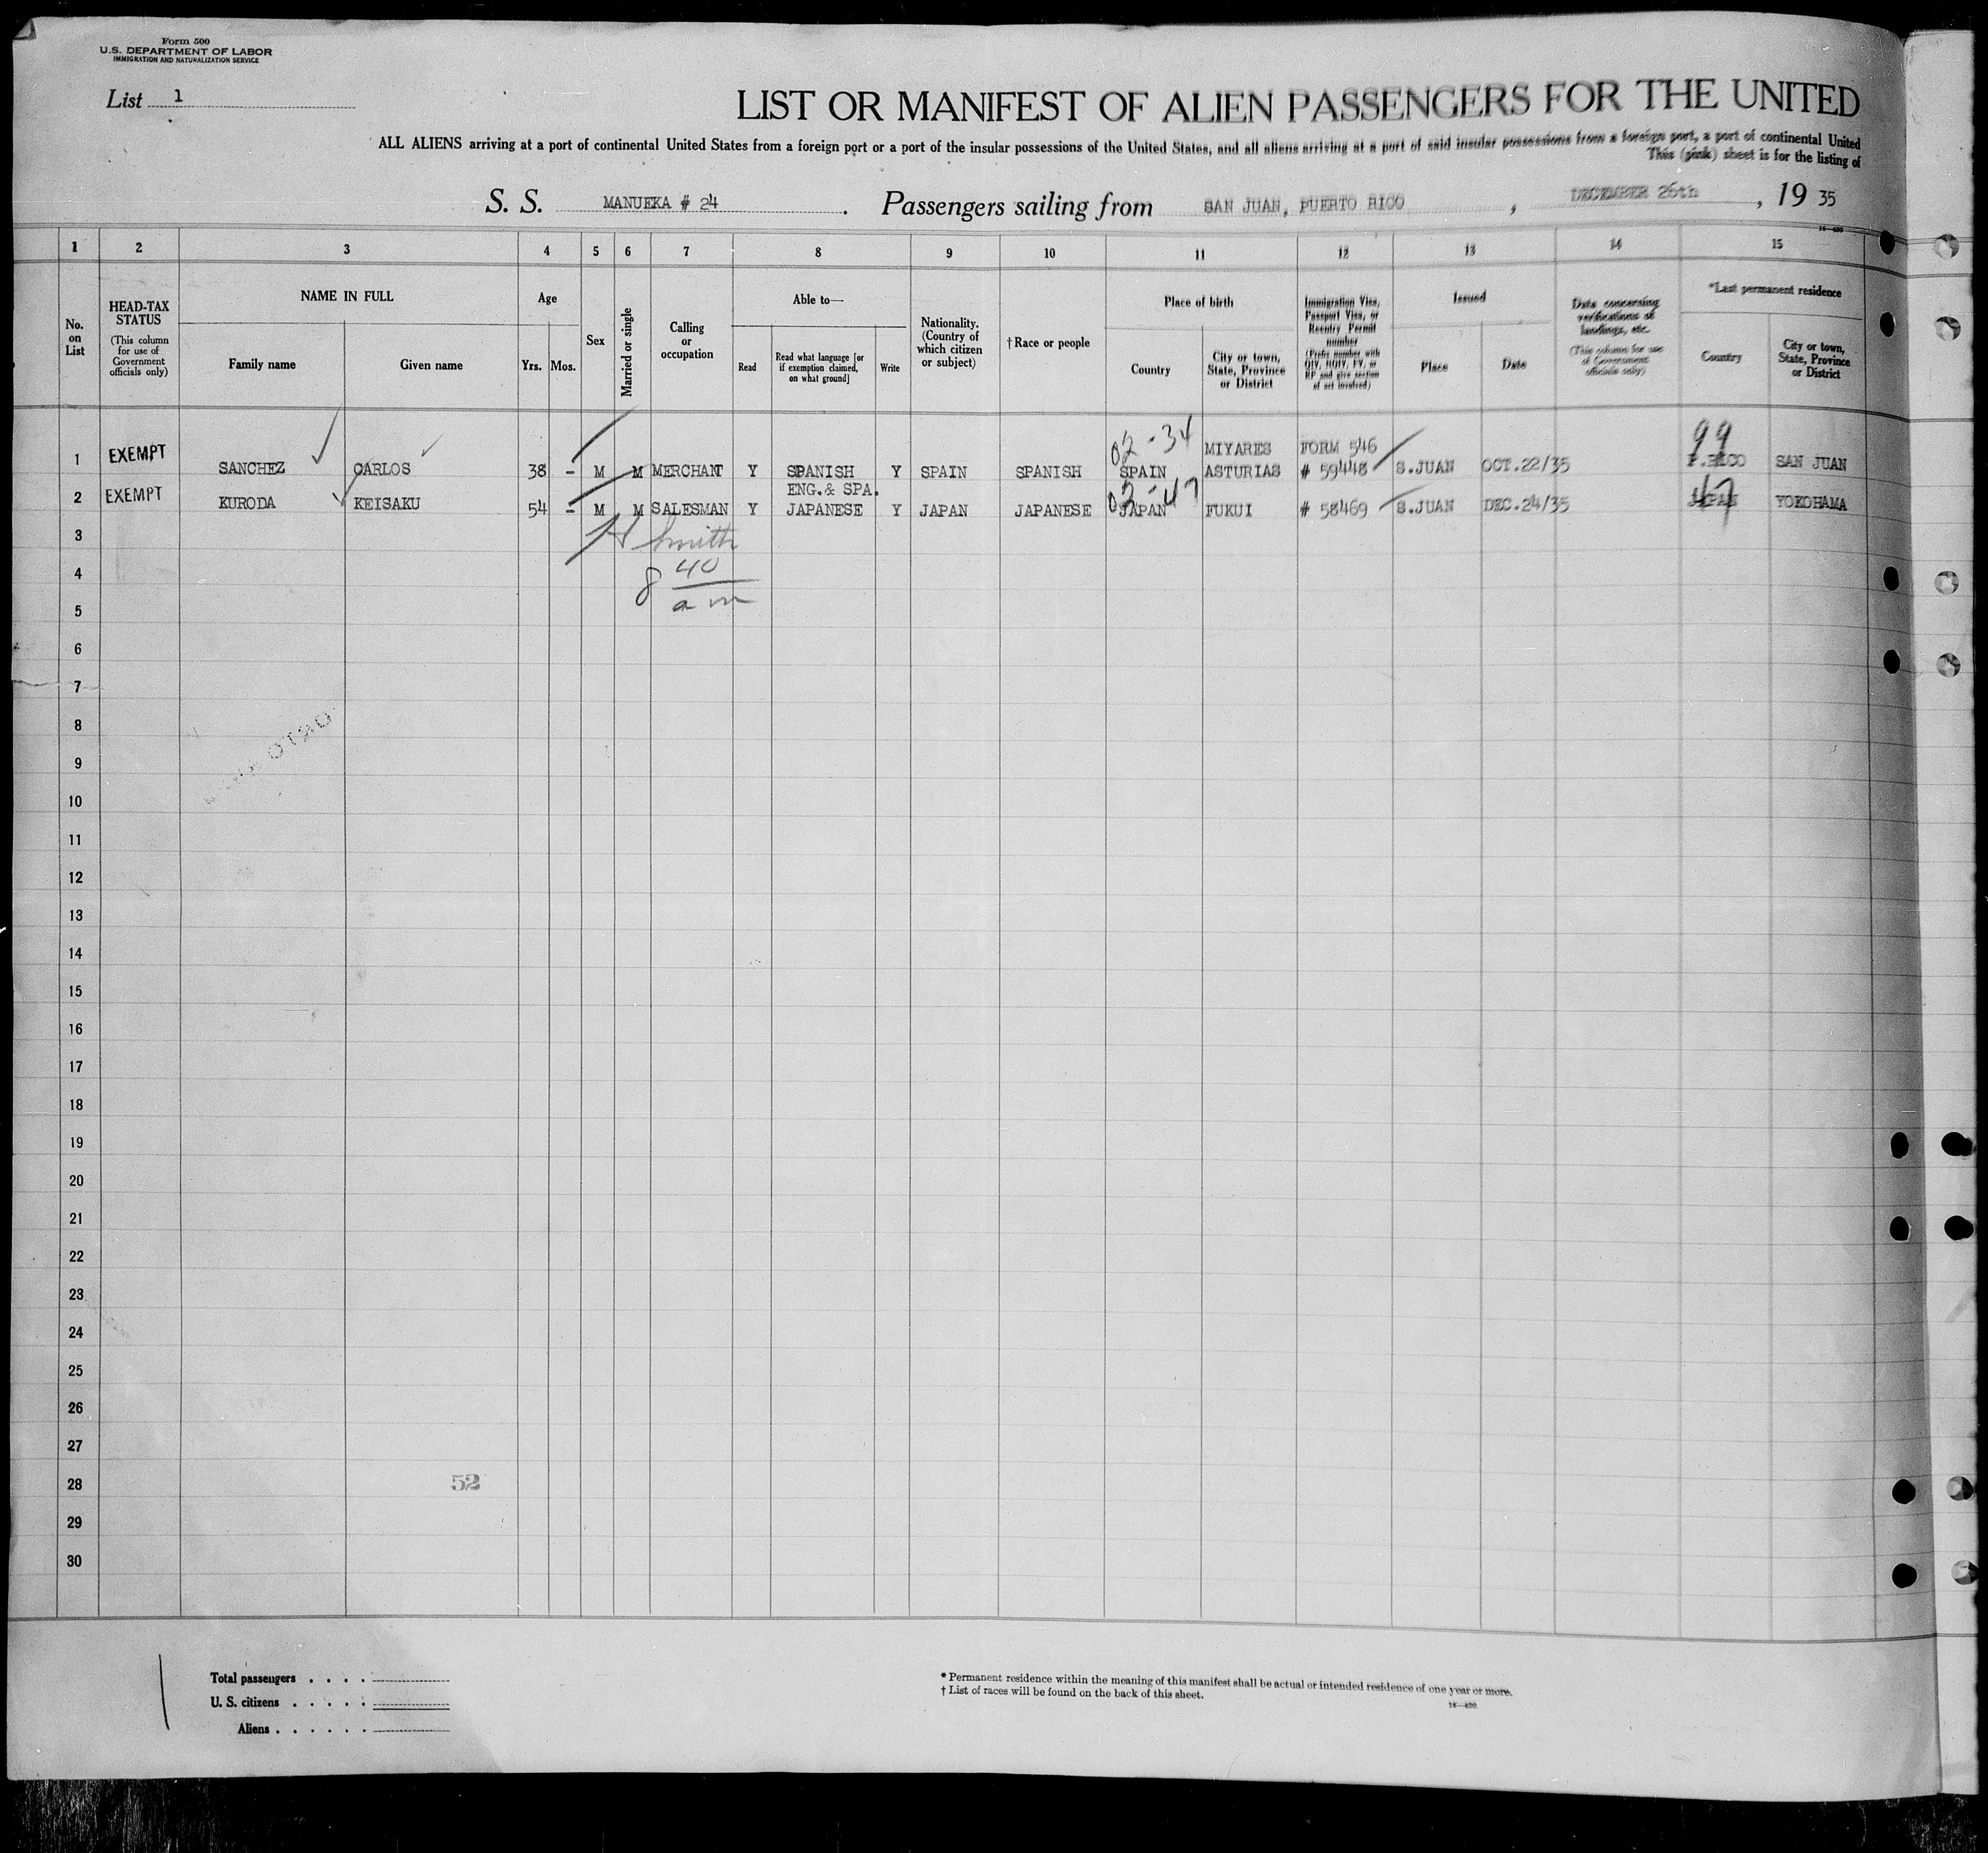 Form 500
U.S. DEPARTMENT OF LABOR
IMMIGRATION AND NATURALIZATION SERVICE
List 1
LIST OR MANIFEST OF ALIEN PASSENGERS FOR THE UNITED
ALL ALIENS arriving at a port of continental United States from a foreign port or a port of the insular possessions of the United States, and all aliens arriving at a port of said insular possessions from a foreign port, a port of continental United
This (pink) sheet is for the listing of
S. S. MANUEKA # 24. Passengers sailing from SAN JUAN, PUERTO RICO, DECEMBER 26th, 19 35
1 2 3 4 5 6 7 8 9 10 11 12 13 14 15
No. on List
HEAD-TAX STATUS
(This column for use of Government officials only)
NAME IN FULL
Family name
Given name
Age
Yrs. Mos.
Sex
Married or single
Calling or occupation
Able to—
Read
Read what language [or if exemption claimed, on what ground]
Write
Nationality. (Country of which citizen or subject)
† Race or people
Place of birth
Country
City or town, State, Province or District
Immigration Visa, Passport Visa, or Reentry Permit number
(Prefix number with QIV, NQIV, PV, or RP and give section of act involved)
Issued
Place
Date
Data concerning verifications of landings, etc.
(This column for use of Government officials only)
*Last permanent residence
Country
City or town, State, Province or District
02-34 MIYARES FORM 546 99
1 EXEMPT SANCHEZ CARLOS 38 - M M MERCHANT Y SPANISH Y SPAIN SPANISH SPAIN ASTURIAS # 59448 S.JUAN OCT.22/35 P.RICO SAN JUAN
ENG.& SPA. 02-47 47
2 EXEMPT KURODA KEISAKU 54 - M M SALESMAN Y JAPANESE Y JAPAN JAPANESE JAPAN FUKUI # 58469 S.JUAN DEC.24/35 JAPAN YOKOHAMA
3 Smith
4 8 40
5 a m
6
7
8
9
10
11
12
13
14
15
16
17
18
19
20
21
22
23
24
25
26
27
28 52
29
30
Total passengers . . . .
U. S. citizens . . . . .
Aliens . . . . . .
* Permanent residence within the meaning of this manifest shall be actual or intended residence of one year or more.
† List of races will be found on the back of this sheet.
14—430